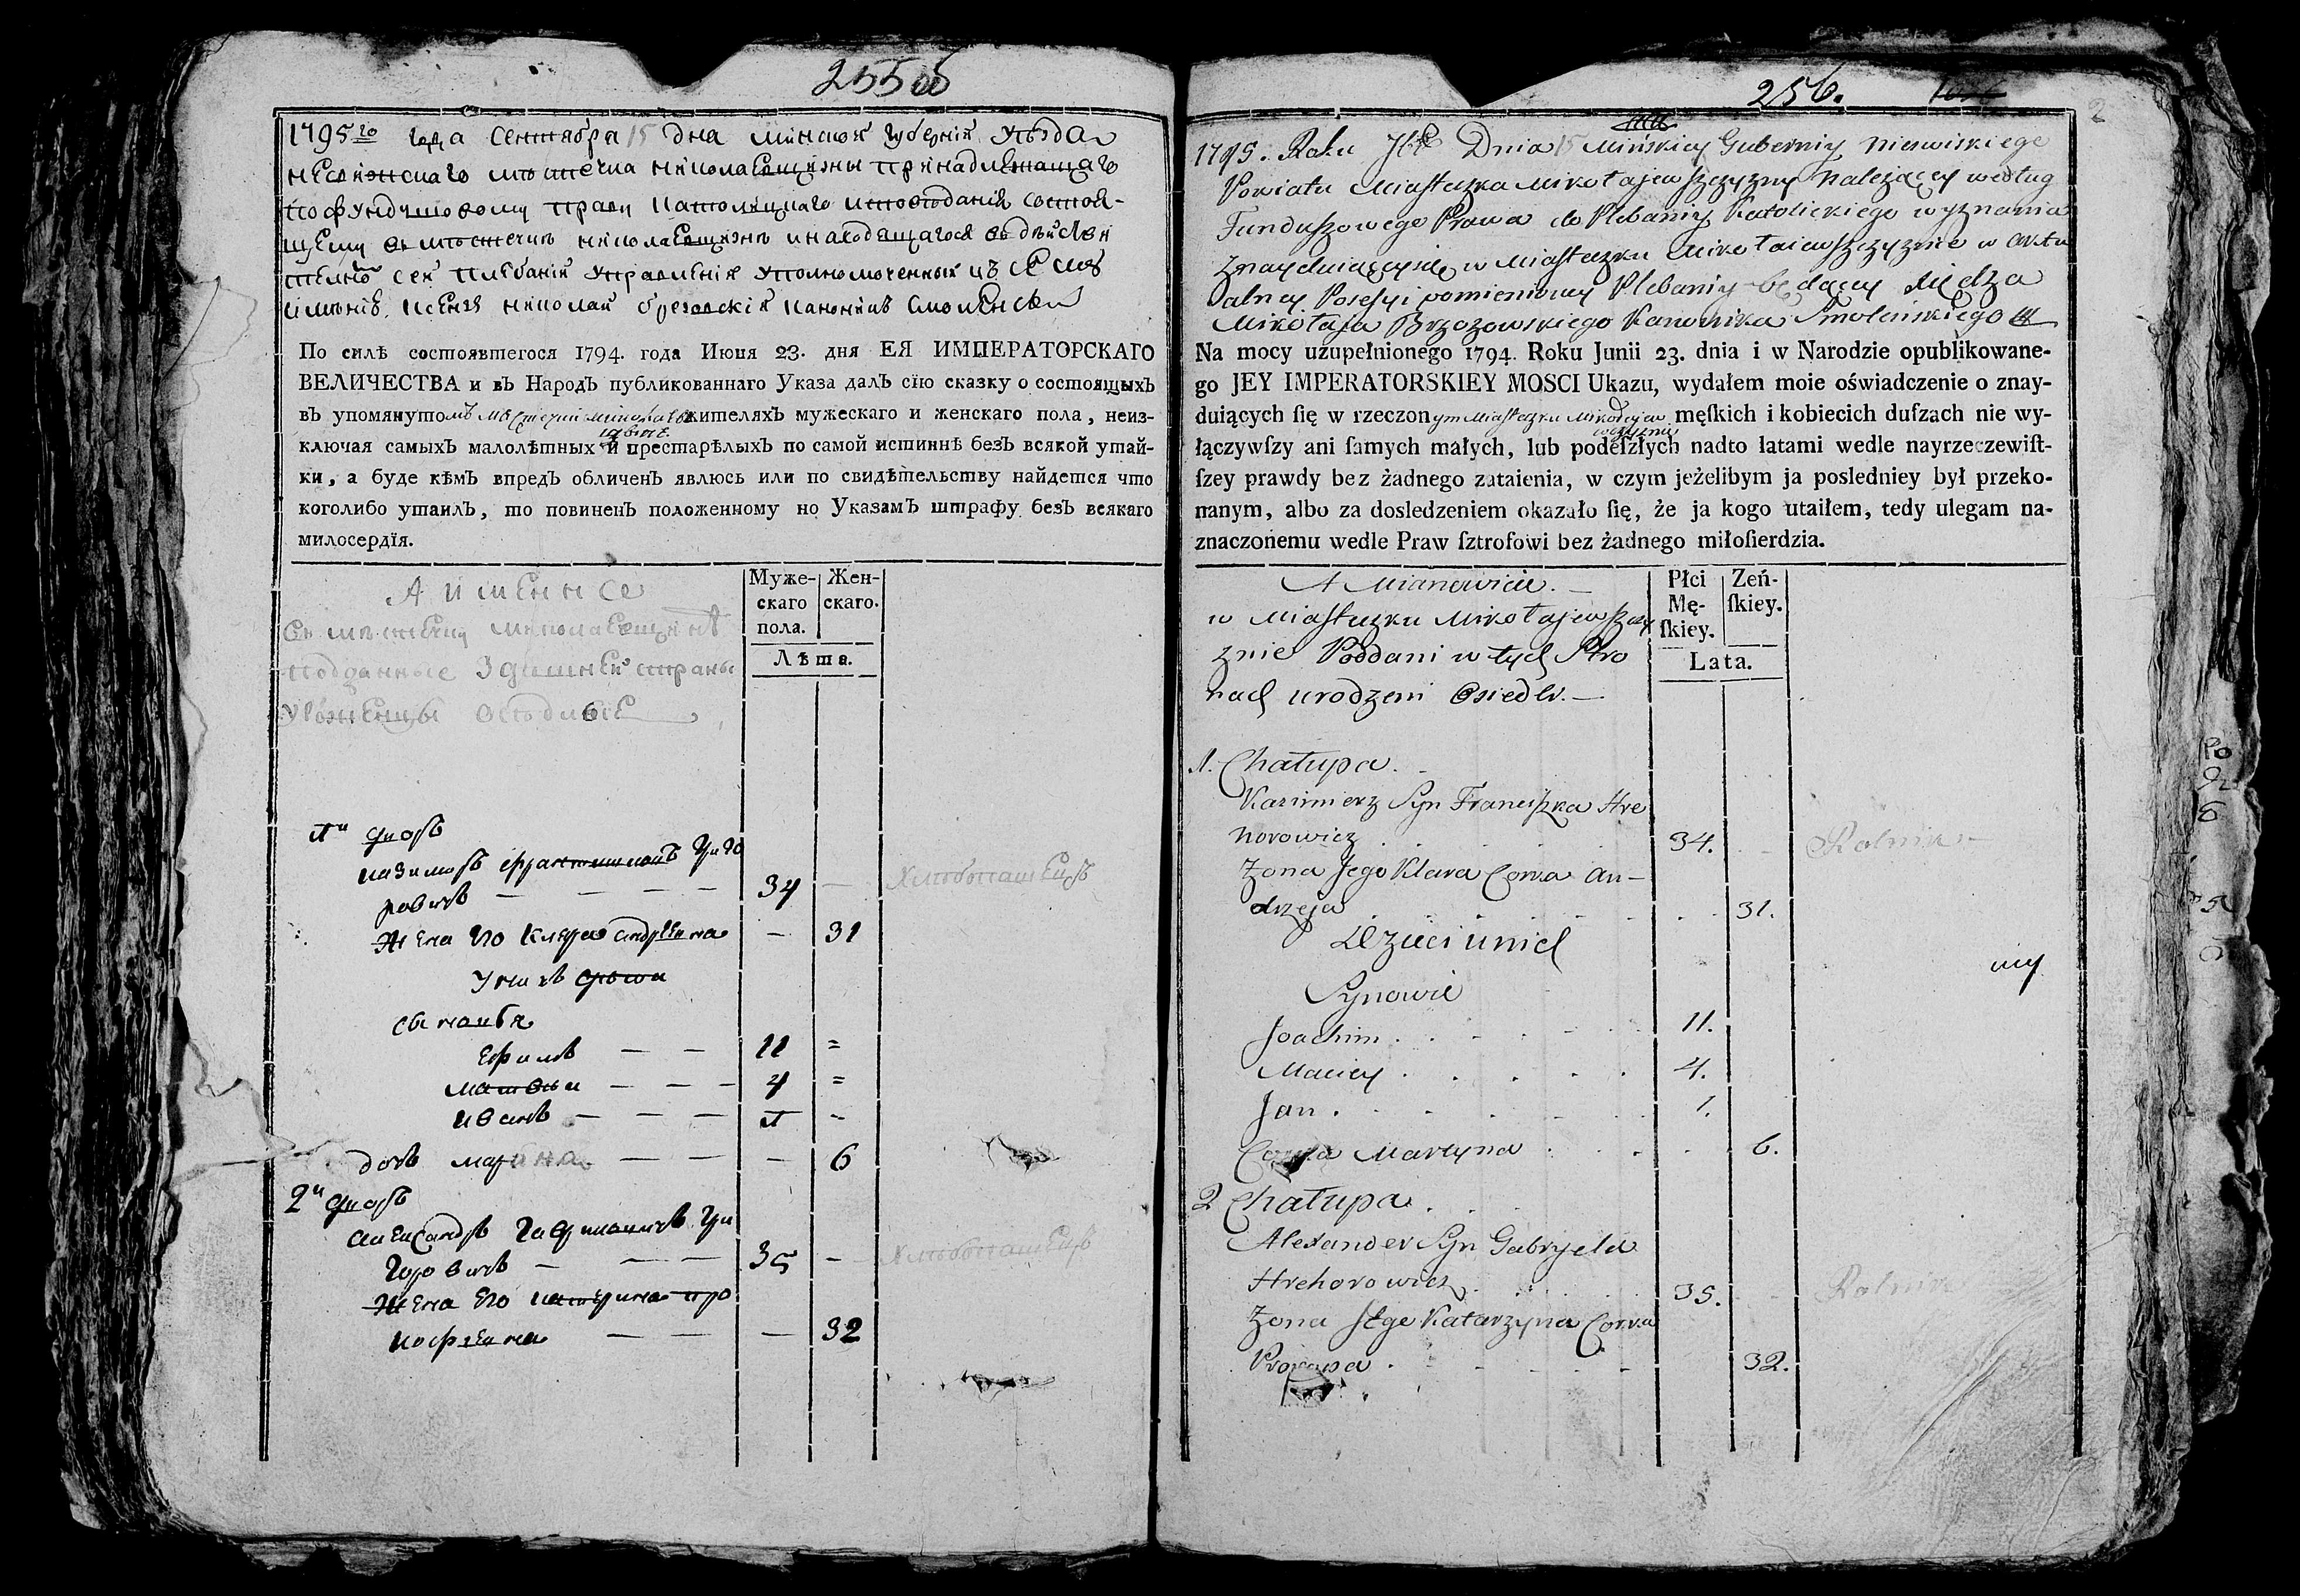 255 об
1795го года Сентября 15 дня Минской Губернiи Уѣзда
Несвижскаго мѣстечка Николаевщизны принадлежащаго
по фундушовому праву Католицкаго исповѣданiя состоя-
щему въ мѣстечкѣ Николаевщизнѣ и находящагося въ дѣйстви
тельной сей плебанiи управленiя уполномоченный
имѣнiе Ксендз Николай Брезовскiй Каноникъ Смоленски
По силѣ состоявшегося 1794. года Июня 23. дня ЕЯ ИМПЕРАТОРСКАГО
ВЕЛИЧЕСТВА и въ Народъ публикованнаго Указа далъ сiю сказку о состоящыхъ
въ упомянутомъ мѣстечки Миколаев жителяхъ мужескаго и женскаго пола, неиз-
ключая самыхъ малолѣтныхъ и престарѣлыхъ по самой истиннѣ безъ всякой утай-
ки, а буде кѣмъ впредъ обличенъ явлюсь или по свидѣтельству найдется что
коголибо утаилъ, то повиненъ положенному по Указамъ штрафу безъ всякаго
милосердїя.
А именно
Въ мѣстечку Миколаевщизнѣ
подданные здѣшней страны
уроженцы оседлые
Муже- Жен-
скаго скаго.
пола.
Лѣта.
1й дворъ
Казимеръ Францишковъ Григо
ровичъ — — — 34 — Хлѣбопашецъ
Жена его Клера Андреева — 31
У нихъ дѣти
сыновья
Ефимъ — — 11 =
Матвѣи — — — 4 =
Иванъ — — — 1 -
дочь Марина — — — 6
2й дворъ
Александръ Гавриловичъ Гри
горовичъ — — — 35 — Хлѣбопашецъ
Жена его Катерина Про
кофьева — — — 32
256.
2
1795. Roku 7bra Dnia 15 Minskiey Guberniy Nieswiskiego
Powiatu Miasteczka Mikołajewszczyzny należącey według
Funduszowego Prawa do Plebaniy Katolickiego wyznania
znayduiącey się w Miasteczku Mikołaiewszczyznie w aktu
alney Posesyi pomienioney Plebaniy będącey Xiędza
Mikołaja Brzozowskiego Kanonika Smoleńskiego
Na mocy uzupełnionego 1794. Roku Junii 23. dnia i w Narodzie opublikowane-
go JEY IMPERATORSKIEY MOSCI Ukazu, wydałem moie oświadczenie o znay-
duiących ſię w rzeczonym Miasteczku Mikołajew męſkich i kobiecich duſzach nie wy-
szczyznie
łączywſzy ani ſamych małych, lub podeſzłych nadto latami wedle nayrzeczewiſt-
ſzey prawdy bez żadnego zataienia, w czym jeżelibym ja posledniey był przeko-
nanym, albo za dosledzeniem okazało ſię, że ja kogo utaiłem, tedy ulegam na-
znaczonemu wedle Praw ſztrofowi bez żadnego miłoſierdzia.
A Mianowicie.
w Miasteczku Mikołajewszczy
znie Poddani w tych Stro
nach urodzeni Osiedli.
Płci Zeń-
Mę- ſkiey.
ſkiey.
Lata.
1. Chałupa.
Kazimierz Syn Franciszka Hre
horowicz 34. Rolnik
Zona Jego Klara Corka An-
drzeja 31.
Dzieci u nich
Synowie
Joachim 11.
Maciey 4.
Jan 1.
Corka Marcyna 6.
2 Chałupa
Alexander Syn Gabryela
Hrehorowicz 35. Rolnik
Zona Jego Katarzyna Corka
Prokopa 32.